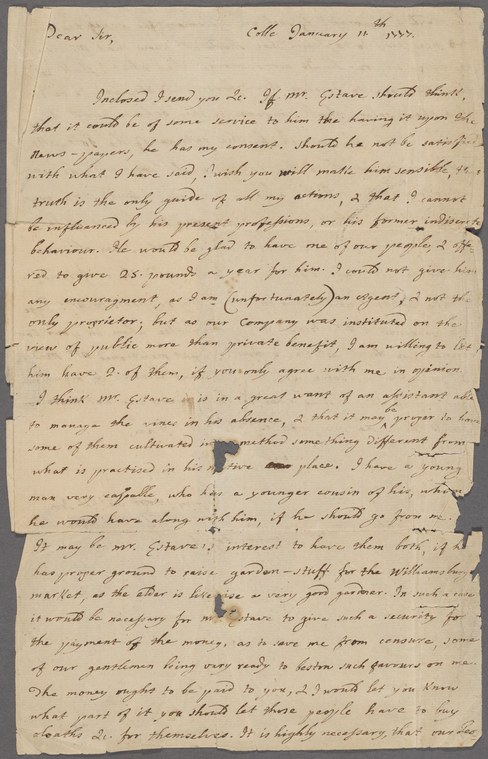 Dear Sir, Colle January 11th 1777.
Inclosed I send you &c. If Mr. Estave should think,
that it could be of some service to him the having it upon the
news-papers, he has my consent. Should he not be satisfied
with what I have said, I wish you will make him sensible, that
truth is the only guide of all my actions, & that I cannot
be influenced by his present professions, or his former indiscrete
behaviour. He would be glad to have one of our people, & offe
red to give 25. pounds a year for him. I could not give him
any encouragment, as I am (unfortunately) an Agent, & not the
only proprietor; but as our Company was instituted on the
view of public more than private benefit, I am willing to let
him have 2. of them, if you only agree with me in opinion.
I think Mr. Estave is in a great want of an assistant able
to manage the vines in his absence, & that it may be proper to have
some of them cultivated in method something different from
what is practised in his native place. I have a young
man very capable, who has a younger cousin of his, whom
he would have along with him, if he should go from me.
It may be Mr. Estave's interest to have them both, if he
has proper ground to raise garden-stuff for the Williamsburg
market, as the elder is likewise a very good gardner. In such a case
it would be necessary for Mr. Estave to give such a security for
the payment of the money, as to save me from censure, some
of our gentlemen being very ready to bestow such favours on me.
The money ought to be paid to you, & I would let you know
what part of it you should let those people have to buy
cloaths &c. for themselves. It is highly necessary, that our